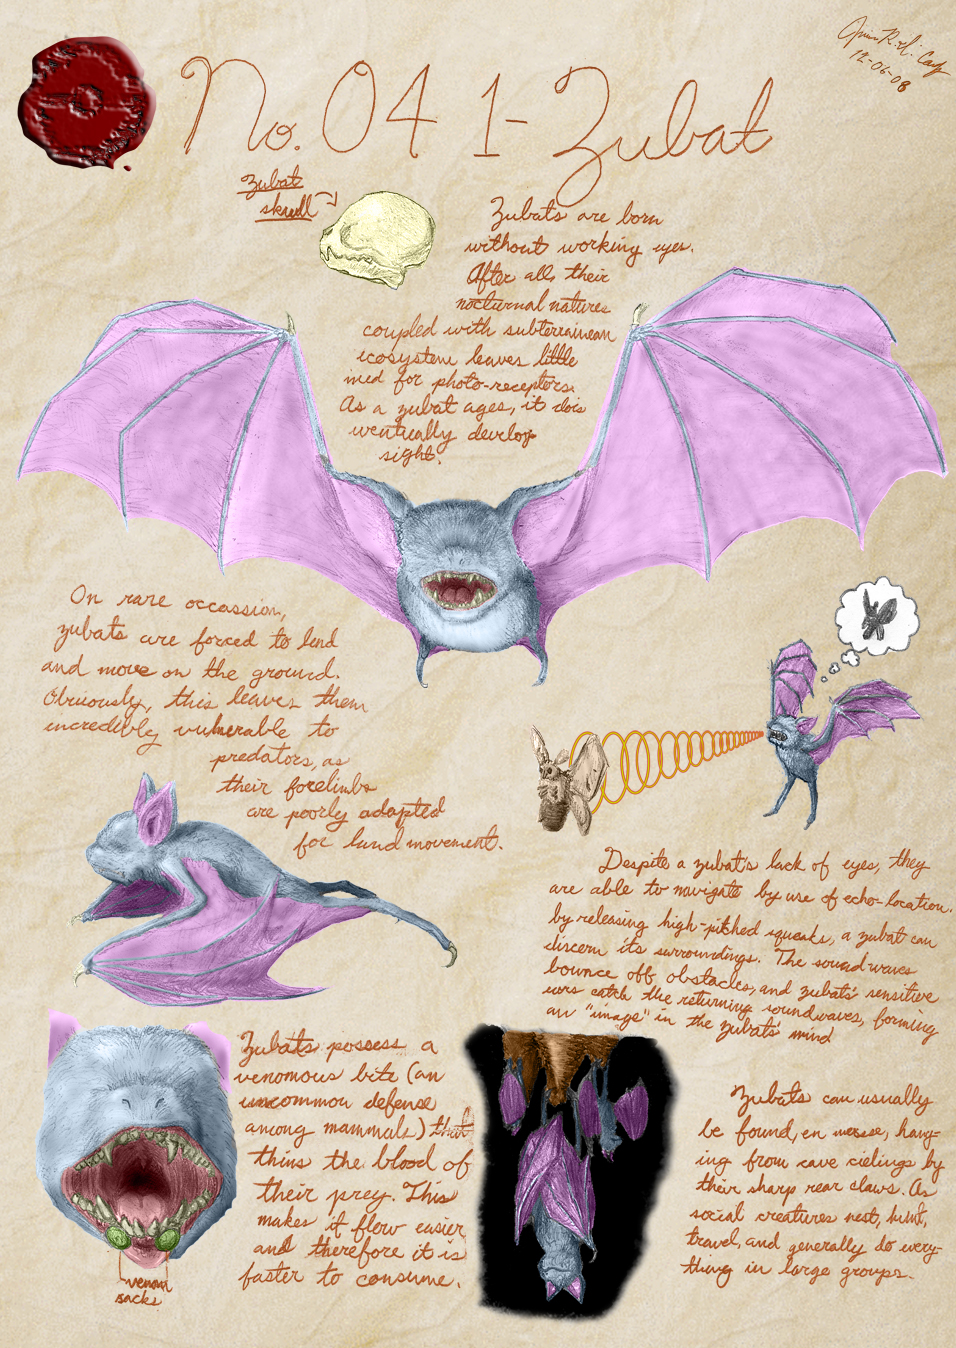 12-06-08
No. 041- Zubat
Zubat
skull
Zubats are born
without working eyes.
After all, their
nocturnal natures
coupled with subterrainean
ecosystem leaves little
need for photo-receptors.
As a zubat ages, it does
eventically develop
sight.
On rare occassion,
zubats are forced to land
and move on the ground.
Obviously, this leaves them
incredibly vulnerable to
predators, as
their forelimbs
are poorly adapted
for land movement.
Despite a zubat's lack of eyes, they
are able to navigate by use of echo-location.
by releasing high-pitched squeaks, a zubat can
discern its surroundings. The sound-waves
bounce off obstacles, and zubats' sensitive
ears catch the returning soundwaves, forming
an "image" in the zubats' mind
Zubats possess a
venomous bite (an
uncommon defense
among mammals) that
thins the blood of
their prey. This
makes it flow easier
and therefore it is
faster to consume.
venom
sacks
Zubats can usually
be found, en masse, hang-
ing from cave cielings by
their sharp rear claws. As
social creatures nest, hunt,
travel, and generally do every-
thing in large groups.